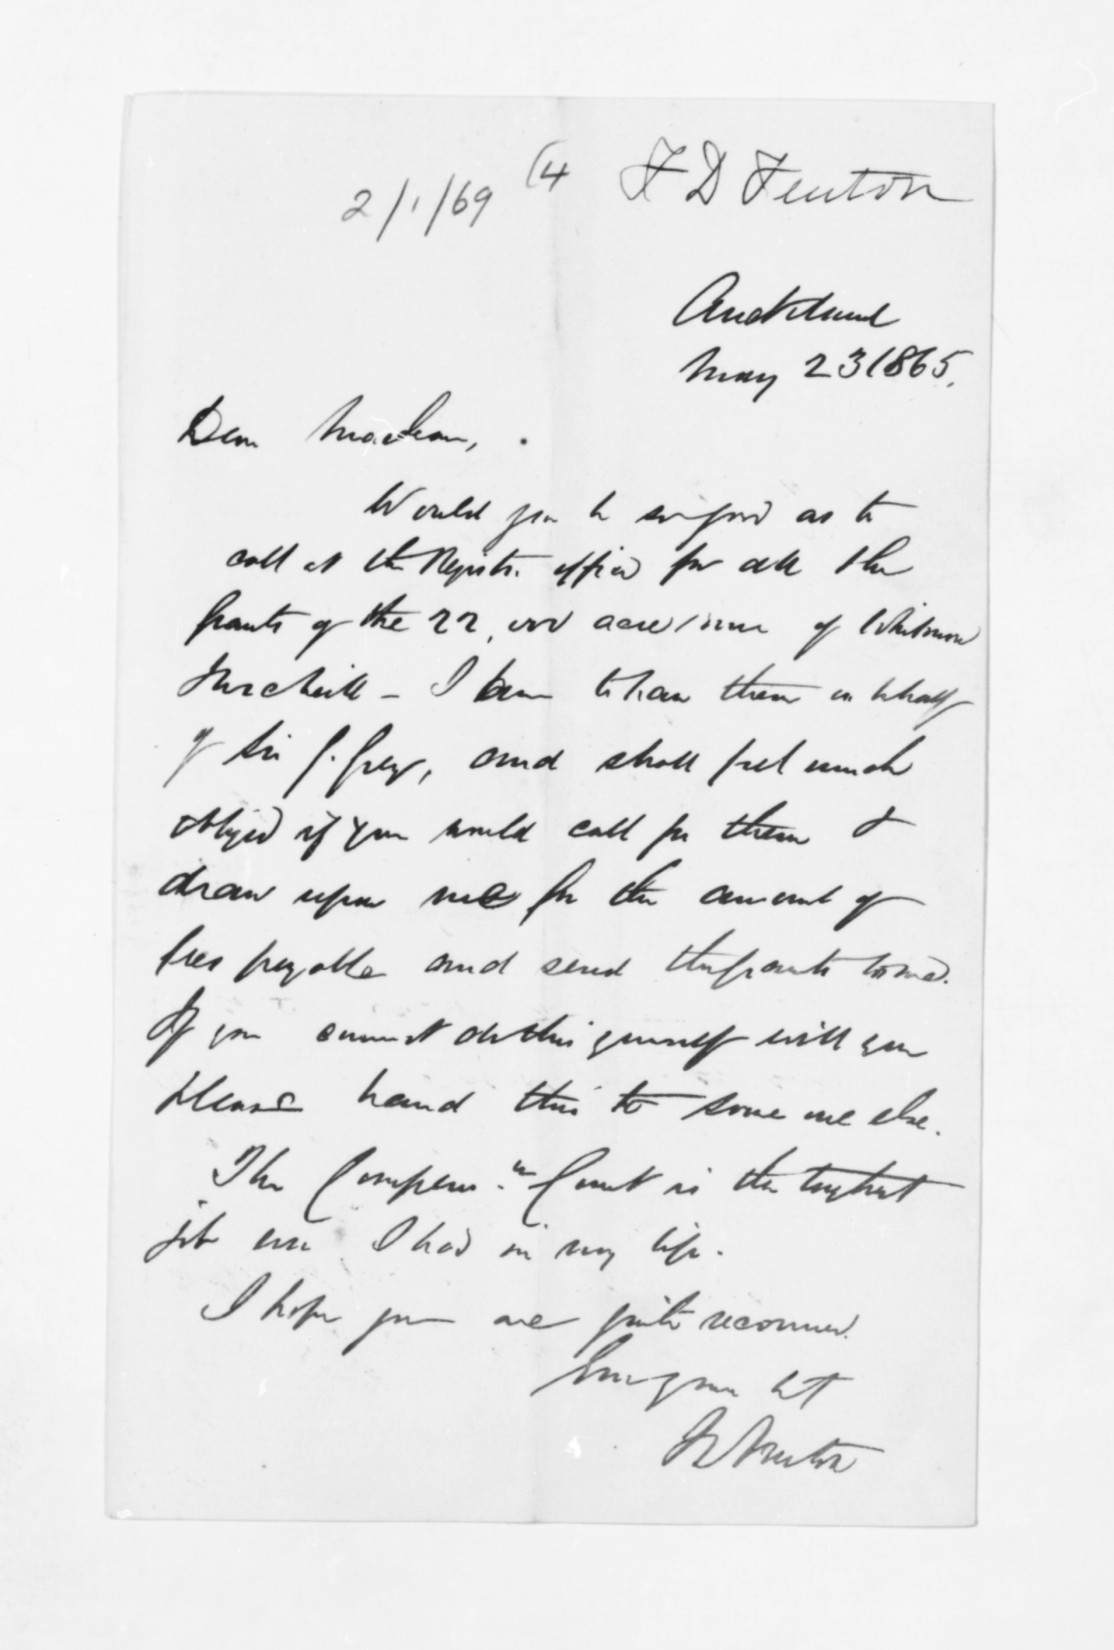 2/1/69 (4 F D Fenton
Auckland
May 23 1865.
Dear Maclean,
Would you be so good as to
call at the Registr. office for all the
grants of the 22,000 acres of Whitmore
I have to have them on behalf
of Sir G. Grey, and shall feel much
obliged if you would call for them &
draw upon me for the amount of
fees payable and send the grants to me.
If you cannot do this yourself will you
please hand this to some one else.
The Compensn. Court is the toughest
job ever I had in my life.
I hope you are quite recovered.
Ever yours &c
F D Fenton